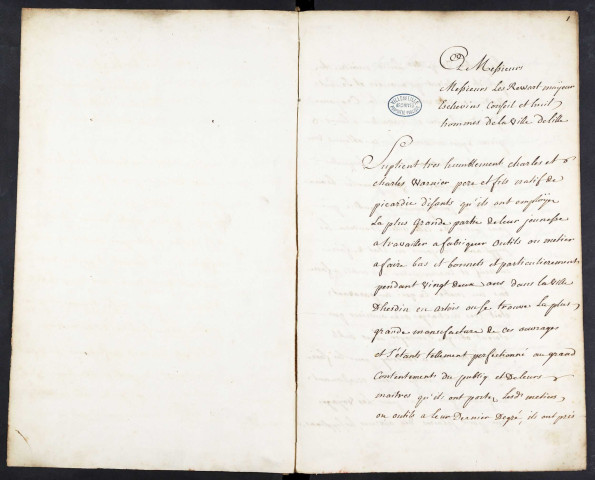 1
A Messieurs
Messieurs Les Rewart mayeur
Echevins Conseil et huit
hommes de la Ville de lille
Suplient tres humblement charles et
charles Warnier pere et fils natif de
picardie disants qu'ils ont employe
La plus Grande partie de leur jeunesse
a travailler a fabriquer outils ou metier
a faire bas et bonnets et particulierement
pendant Vingt deux ans dans la Ville
Dhesdin en artois ou se trouve la plus
grande manufacture de ces ouvrages
et s'étants tellement perfectionné au grand
Contentements du publiq et de leurs
maitres qu'ils ont portez lesds metiers
ou outils a leur Dernier Degré, ils ont pris